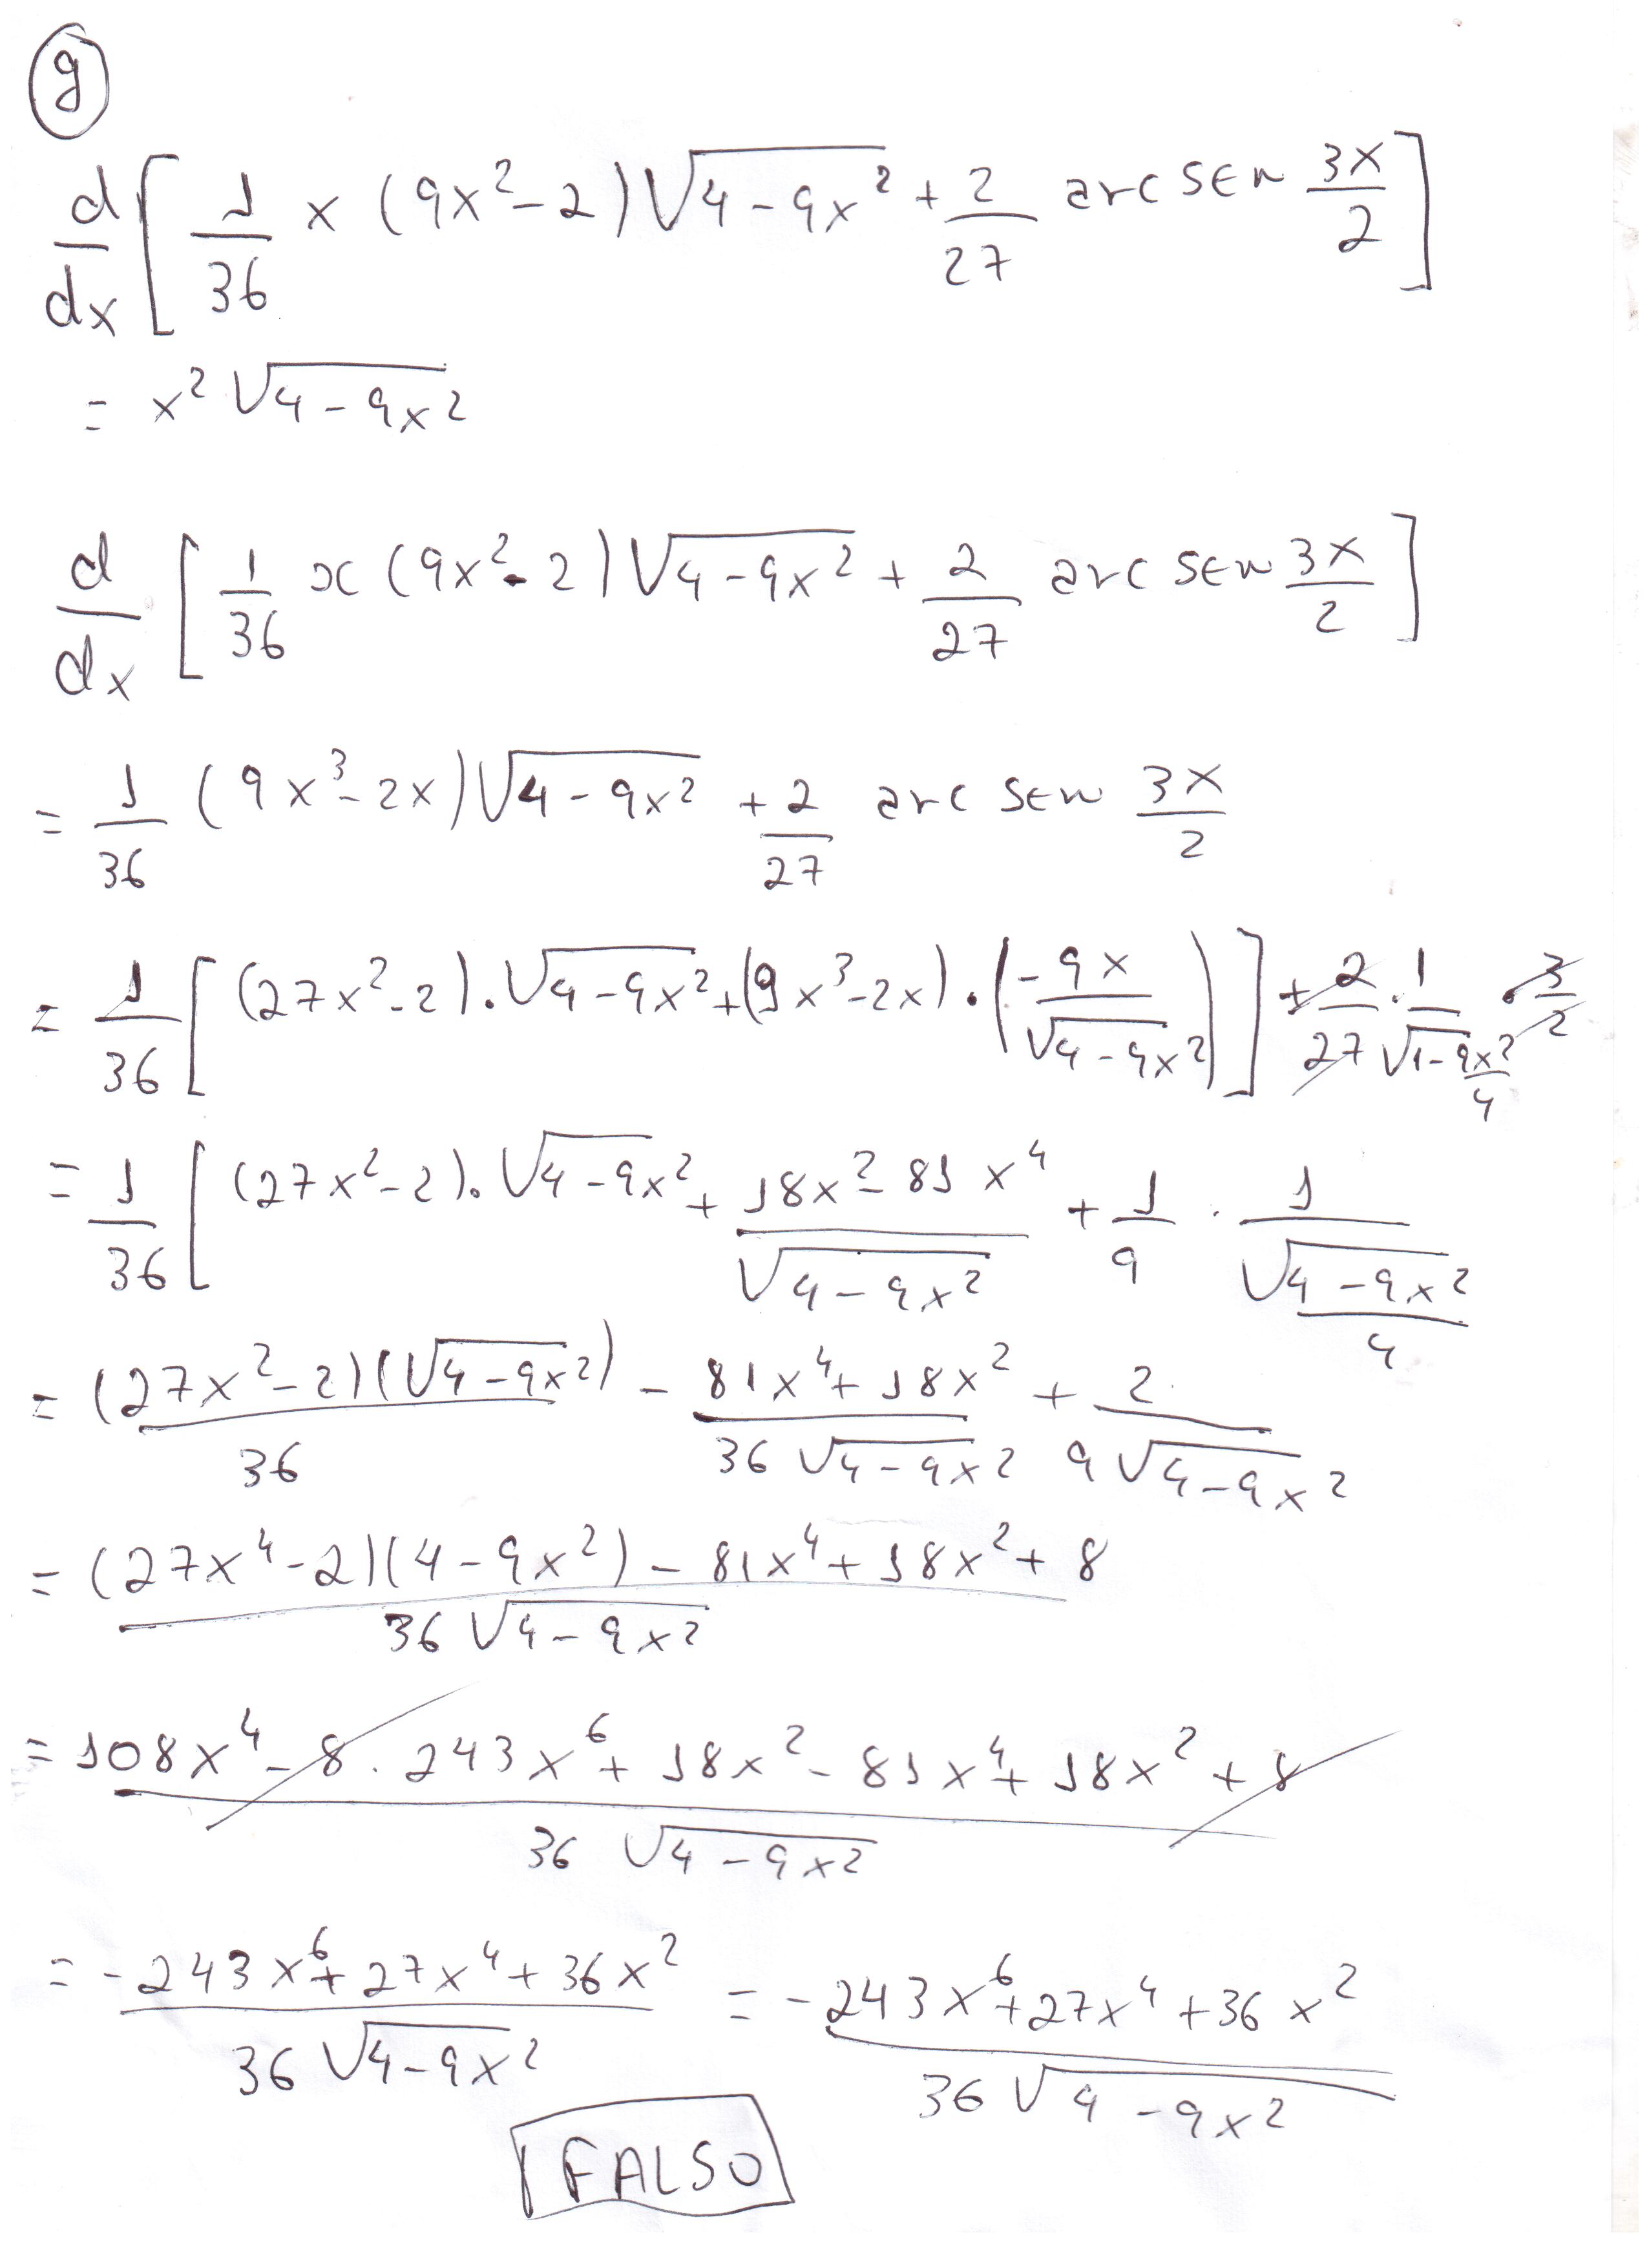 g
d/dx [ 1/36 x (9x² - 2) √(4 - 9x²) + 2/27 arc sen 3x/2 ]
= x² √(4 - 9x²)
d/dx [ 1/36 x (9x² - 2) √(4 - 9x²) + 2/27 arc sen 3x/2 ]
= 1/36 (9x³ - 2x) √(4 - 9x²) + 2/27 arc sen 3x/2
= 1/36 [ (27x² - 2) . √(4 - 9x²) + (9x³ - 2x) . ( -9x/√(4 - 9x²) ) ] + 2/27 . 1/√(1 - 9x²/4) . 3/2
= 1/36 [ (27x² - 2) . √(4 - 9x²) + (18x² - 81x⁴)/√(4 - 9x²) + 1/9 . 1/√((4 - 9x²)/4)
= (27x² - 2)(√(4 - 9x²))/36 - (81x⁴ + 18x²)/(36 √(4 - 9x²)) + 2/(9 √(4 - 9x²))
= ((27x⁴ - 2)(4 - 9x²) - 81x⁴ + 18x² + 8)/(36 √(4 - 9x²))
= (108x⁴ - 8 . 243x⁶ + 18x² - 81x⁴ + 18x² + 8)/(36 √(4 - 9x²))
= (-243x⁶ + 27x⁴ + 36x²)/(36 √(4 - 9x²)) = (-243x⁶ + 27x⁴ + 36x²)/(36 √(4 - 9x²))
FALSO